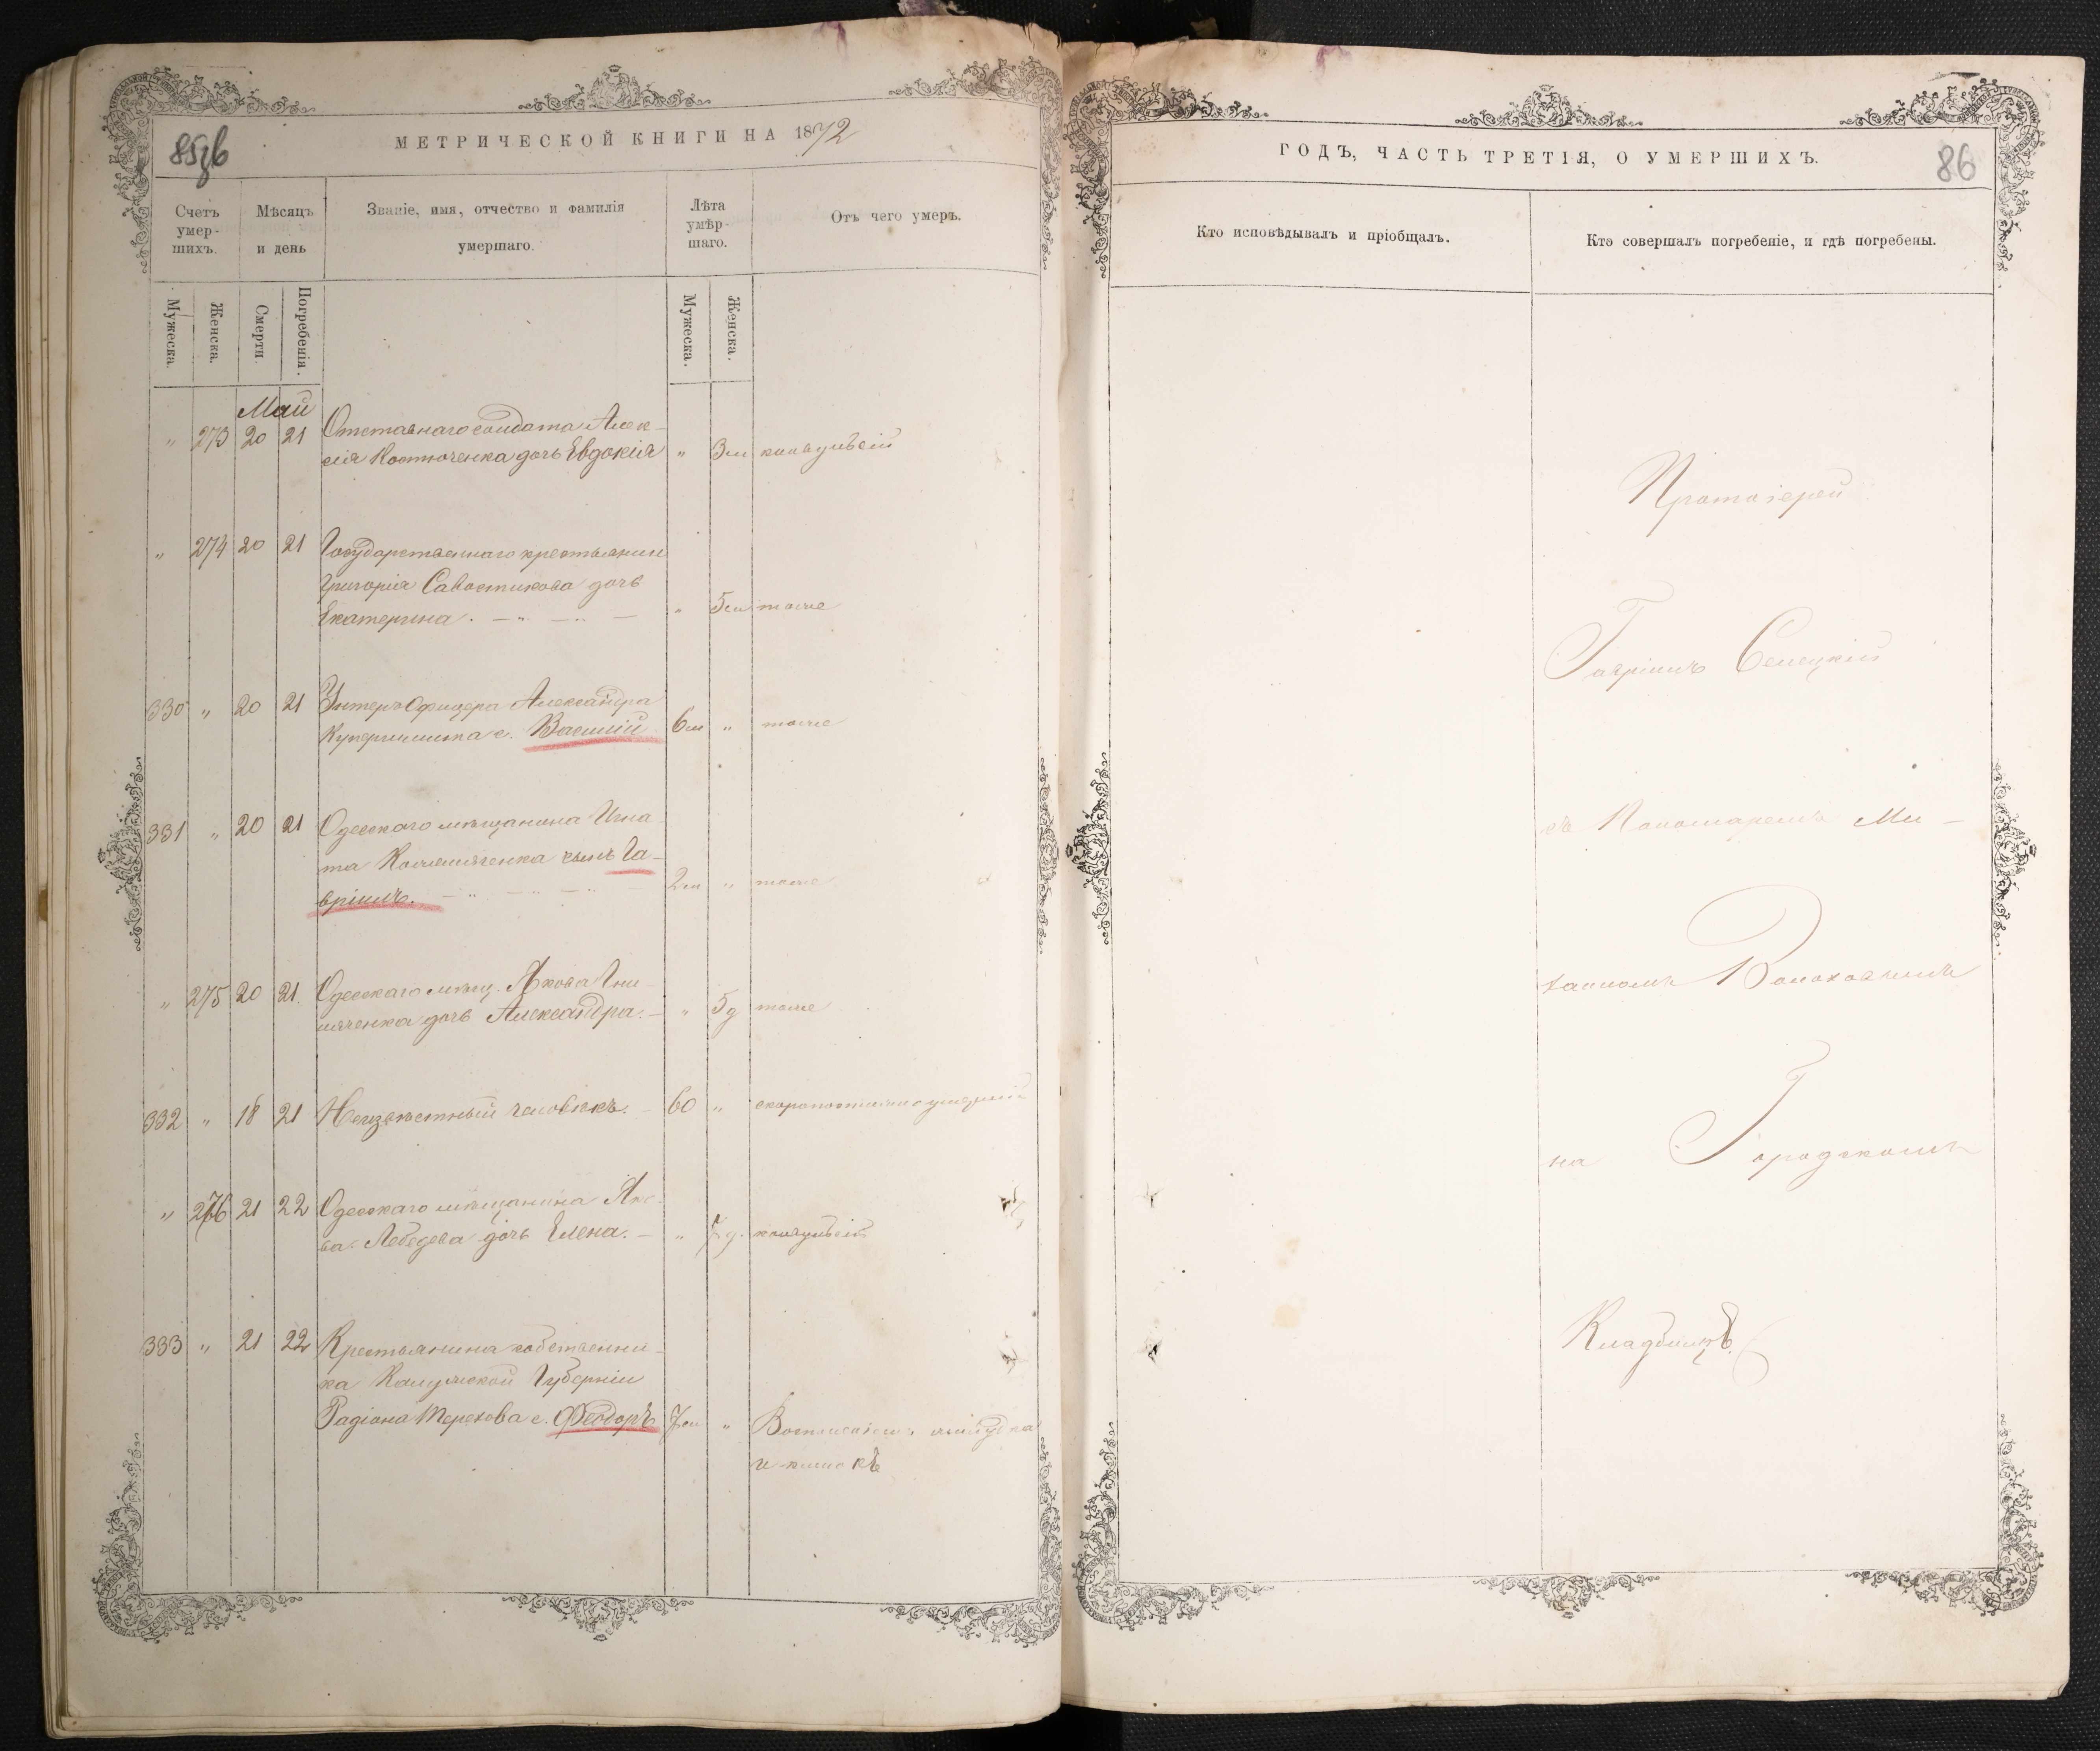 МЕТРИЧЕСКОЙ КНИГИ НА 1872
Счетъ умерших. Мѣсяцъ и день Званіе, имя, отчество и фамилія умершаго. Лѣта умѣршаго. Отъ чего умеръ.
Мужеска. Женска. Смерти. Погребенія. Мужеска. Женска.
Май
" 273 20 21 Отставнаго солдата Алек-
сія Костюченка дочь Евдокія " 3м конвульсій
" 274 20 21 Государственнаго крестьянин
Григорія Савостикова дочь
Екатерина. " 5м тоже
330 " 20 21 Унтеръ Офицера Александра
с. Василій 6м " тоже
331 " 20 21 Одесскаго мѣщанина Игна
та сынъ Га-
вріилъ. 2м " тоже
" 275 20 21 Одесскаго мѣщ. Якова
дочь Александра. " 5д тоже
332 " 18 21 Неизвѣстный человѣкъ. 60 " скоропостижно умершій
" 276 21 22 Одесскаго мѣщанина Яко
ва Лебедева дочь Елена. " 7д. конвульсій
333 " 21 22 Крестьянина собственни-
ка Калужской Губерніи
Радіона Терехова с. Феодоръ 7м " Воспаленіемъ желудка
и кишекъ
ГОДЪ, ЧАСТЬ ТРЕТІЯ, О УМЕРШИХЪ.
86
Кто исповѣдывалъ и пріобщалъ. Кто совершалъ погребеніе, и гдѣ погребены.
Протоіерей
Гавріилъ Селецкій
съ Пономаремъ Ми-
хаиломъ
на Городскомъ
Кладбищѣ.